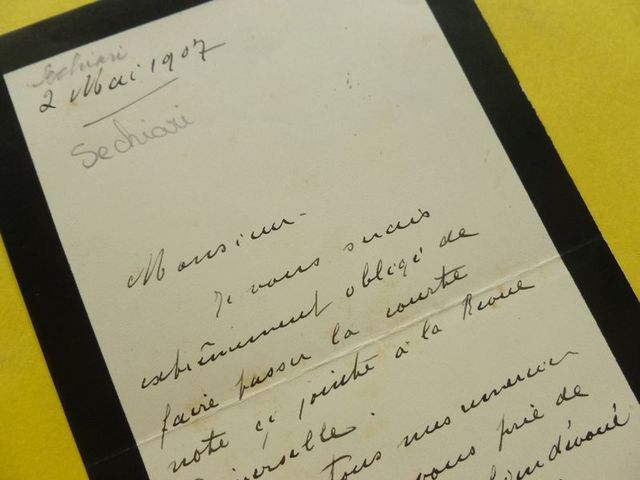 Sechiari
2 Mai 1907
Sechiari
Monsieur -
Je vous serais
extrêmement obligé de
faire passer la courte
note ci jointe à la Revue
verselle.
tous mes
vous prie de
dévoué